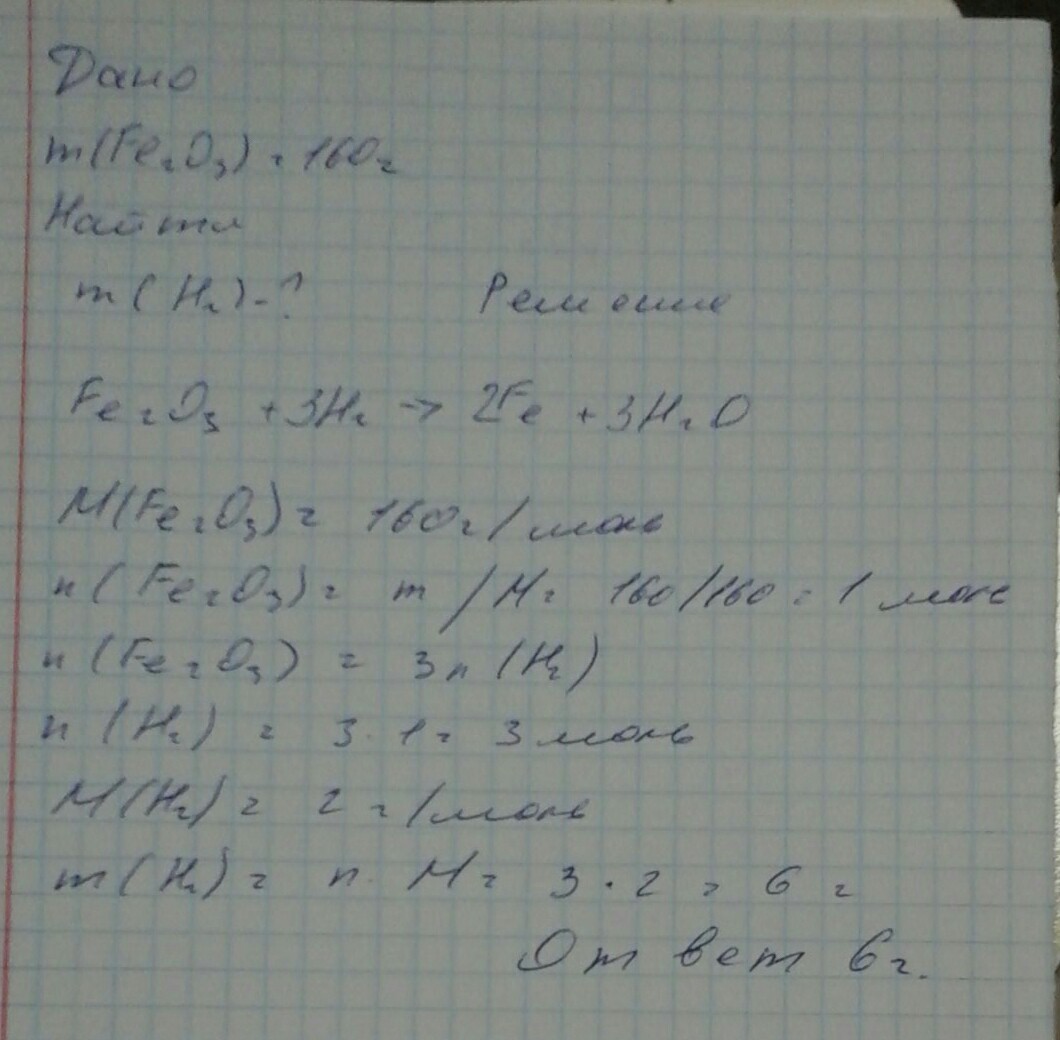 Дано
m(Fe₂O₃) = 160г
Найти
m(H₂)-? Решение
Fe₂O₃ + 3H₂ → 2Fe + 3H₂O
M(Fe₂O₃) = 160г/моль
n(Fe₂O₃) = m/M = 160/160 = 1 моль
n(Fe₂O₃) = 3n(H₂)
n(H₂) = 3·1 = 3 моль
M(H₂) = 2 г/моль
m(H₂) = n·M = 3·2 = 6 г
Ответ 6г.